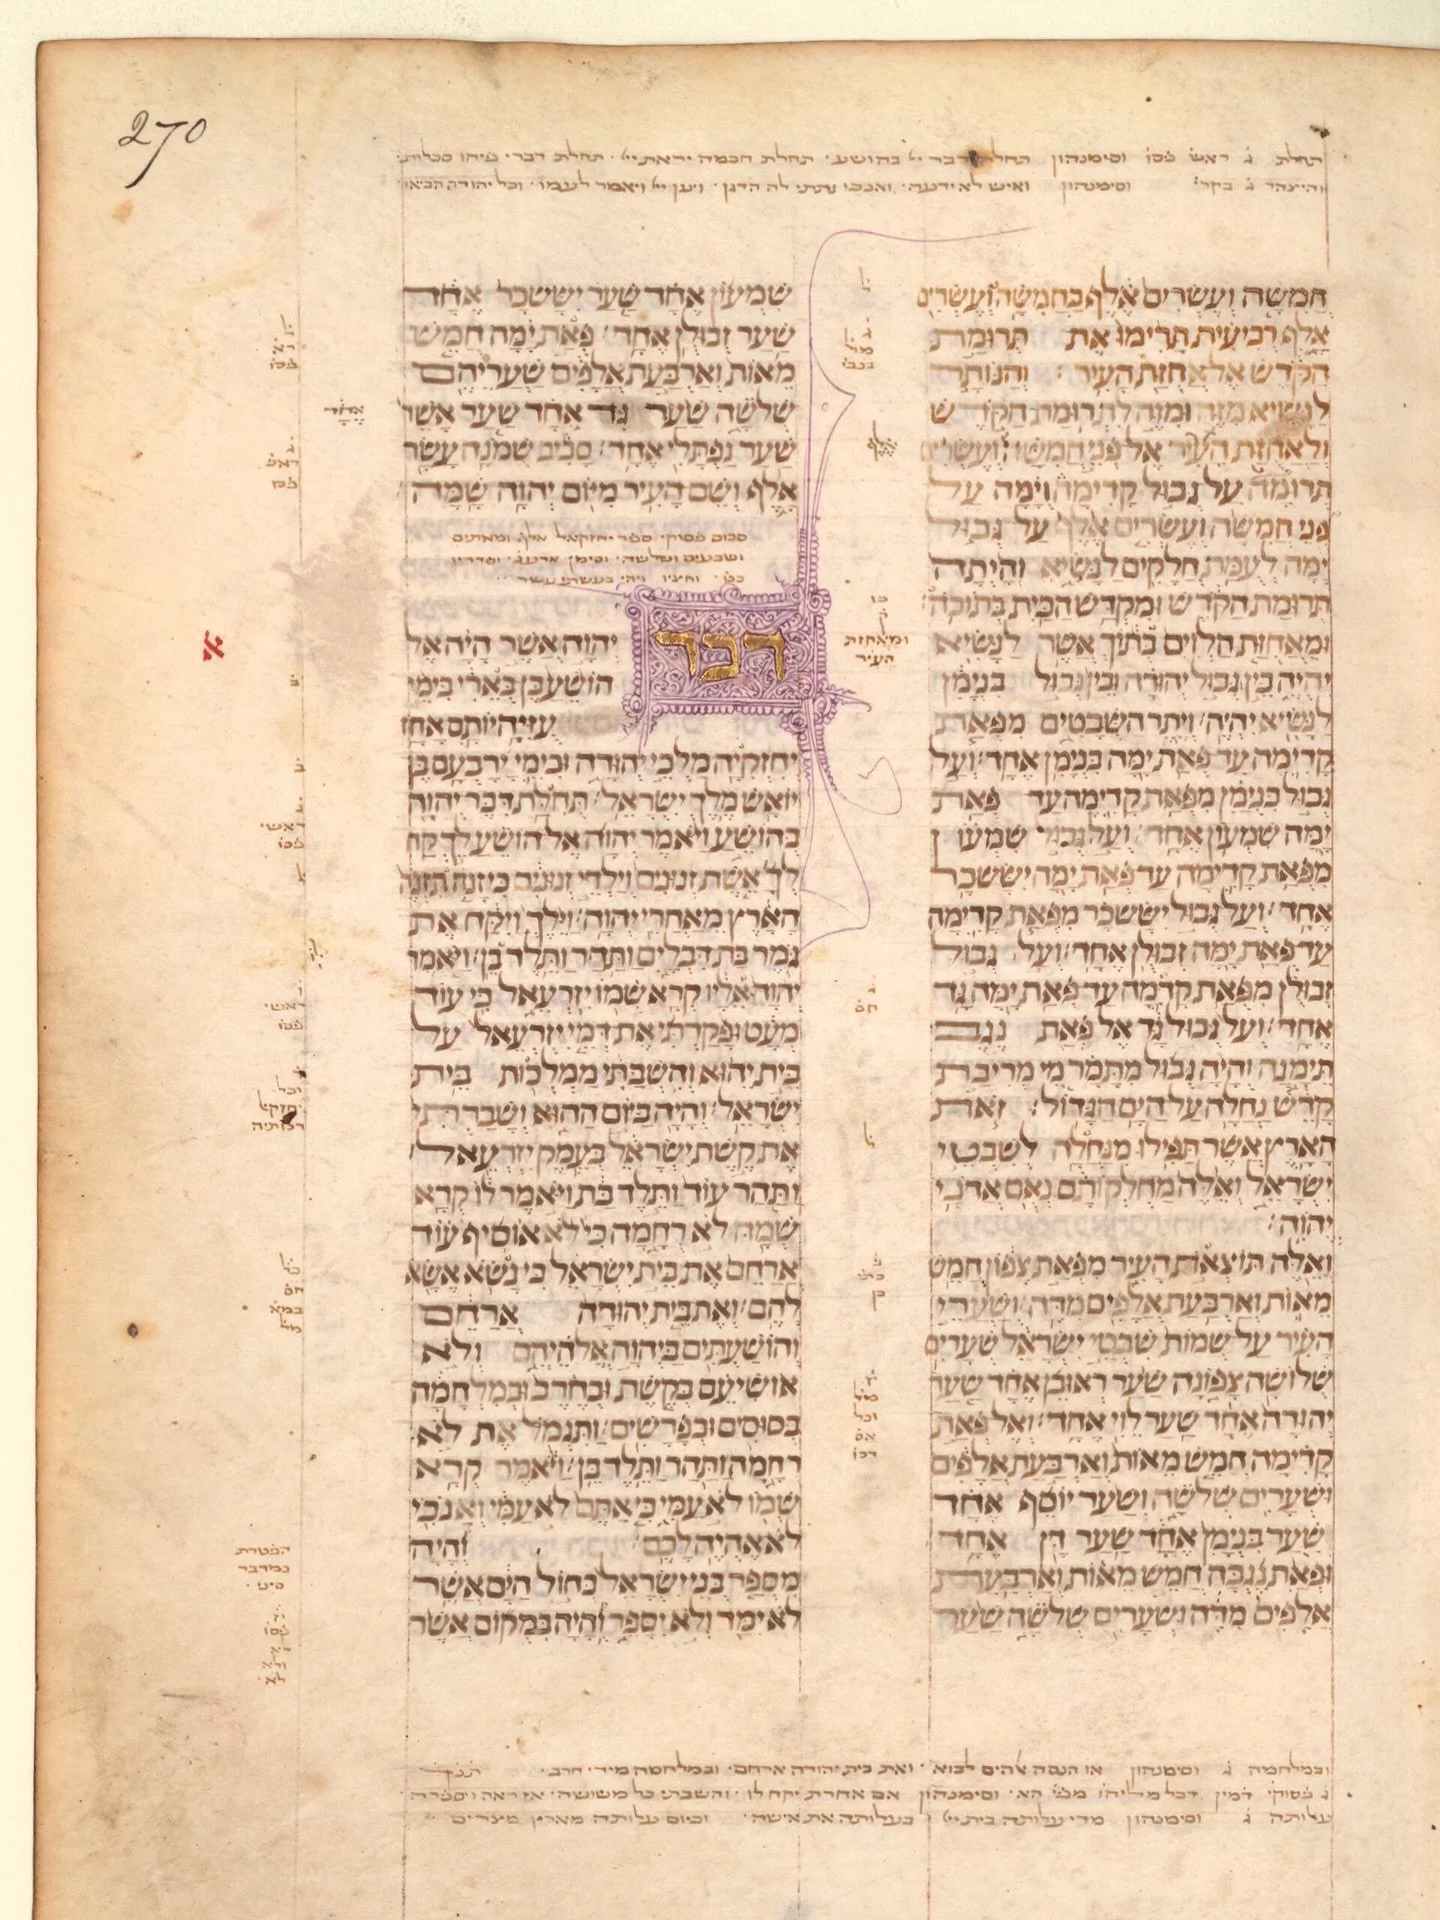 270
תחלת ג ראש פסו וסימנהון תחלת דבר יי בהושע תחלת חכמה יראת יי תחלת דברי פיהו סכלות
והיצהר ג בקר וסימנהון ואיש לא ידעה ואנכי נתתי לה הדגן ויען יי ויאמר לעמו וכל יהודה הביאו
חמשה ועשרים אלף בחמשה ועשרים
אלף רביעית תרימו את תרומת
הקדש אל אחזת העיר והנותר
לנשיא מזה ומזה לתרומת הקדש
ולאחזת העיר אל פני חמשה ועשרים
תרומה על גבול קדימה וימה על
פני חמשה ועשרים אלף על גבול
ימה לעמת חלקים לנשיא והיתה
תרומת הקדש ומקדש הבית בתוכה
ומאחזת הלוים בתוך אשר לנשיא
יהיה בין גבול יהודה ובין גבול בנימן
לנשיא יהיה ויתר השבטים מפאת
קדימה עד פאת ימה בנימן אחד ועל
גבול בנימן מפאת קדימה עד פאת
ימה שמעון אחד ועל גבול שמעון
מפאת קדימה עד פאת ימה יששכר
אחד ועל גבול יששכר מפאת קדימה
עד פאת ימה זבולן אחד ועל גבול
זבולן מפאת קדמה עד פאת ימה גד
אחד ועל גבול גד אל פאת נגב
תימנה והיה גבול מתמר מי מריבת
קדש נחלה על הים הגדול זאת
הארץ אשר תפילו מנחלה לשבטי
ישראל ואלה מחלקותם נאם אדני
יהוה
ואלה תוצאת העיר מפאת צפון חמש
מאות וארבעת אלפים מדה ושערי
העיר על שמות שבטי ישראל שערים
שלושה צפונה שער ראובן אחד שער
יהודה אחד שער לוי אחד ואל פאת
קדימה חמש מאות וארבעת אלפים
ושערים שלשה ושער יוסף אחד
שער בנימן אחד שער דן אחד
ופאת נגבה חמש מאות וארבעת
אלפים מדה ושערים שלשה שער
אלף
ומאחזת
העיר
שמעון אחד שער יששכר אחד
שער זבולן אחד פאת ימה חמש
מאות וארבעת אלפים שעריהם
שלשה שער גד אחד שער אשר
שער נפתלי אחד סביב שמנה עשר
אלף ושם העיר מיום יהוה שמה
סכום פסוקי ספר יחזקאל אלף ומאתים
ושבעים ושלשה וסימן ארעג וסדריו
כט וחציו ויהי בעשתי עשר
דבר יהוה אשר היה אל
הושע בן בארי בימי
עזיה יותם אחז
יחזקיה מלכי יהודה ובימי ירבעם בן
יואש מלך ישראל תחלת דבר יהוה
בהושע ויאמר יהוה אל הושע לך קח
לך אשת זנונים וילדי זנונים כי זנה תזנה
הארץ מאחרי יהוה וילך ויקח את
גמר בת דבלים ותהר ותלד בן ויאמר
יהוה אליו קרא שמו יזרעאל כי עוד
מעט ופקדתי את דמי יזרעאל על
בית יהוא והשבתי ממלכות בית
ישראל והיה ביום ההוא ושברתי
את קשת ישראל בעמק יזרעאל
ותהר עוד ותלד בת ויאמר לו קרא
שמה לא רחמה כי לא אוסיף עוד
ארחם את בית ישראל כי נשא אשא
להם ואת בית יהודה ארחם
והושעתים ביהוה אלהיהם ולא
אושיעם בקשת ובחרב ובמלחמה
בסוסים ובפרשים ותגמל את לא
רחמה ותהר ותלד בן ויאמר קרא
שמו לא עמי כי אתם לא עמי ואנכי
לא אהיה לכם והיה
מספר בני ישראל כחול הים אשר
לא ימד ולא יספר והיה במקום אשר
אחד
א
הפטרת
במדבר
סיני
ובמלחמה ג וסימנהון או הנסה אלהים לבוא ואת בית יהודה ארחם ובמלחמה מידי חרב
ג פסוקי דמין וסימנהון אם אחרת יקח לו והשבתי כל משושה אז ראה ויספרה
עלותה ג וסימנהון מדי עלותה בבית יי בעלותה את אישה וכיום עלותה מארץ מצרים